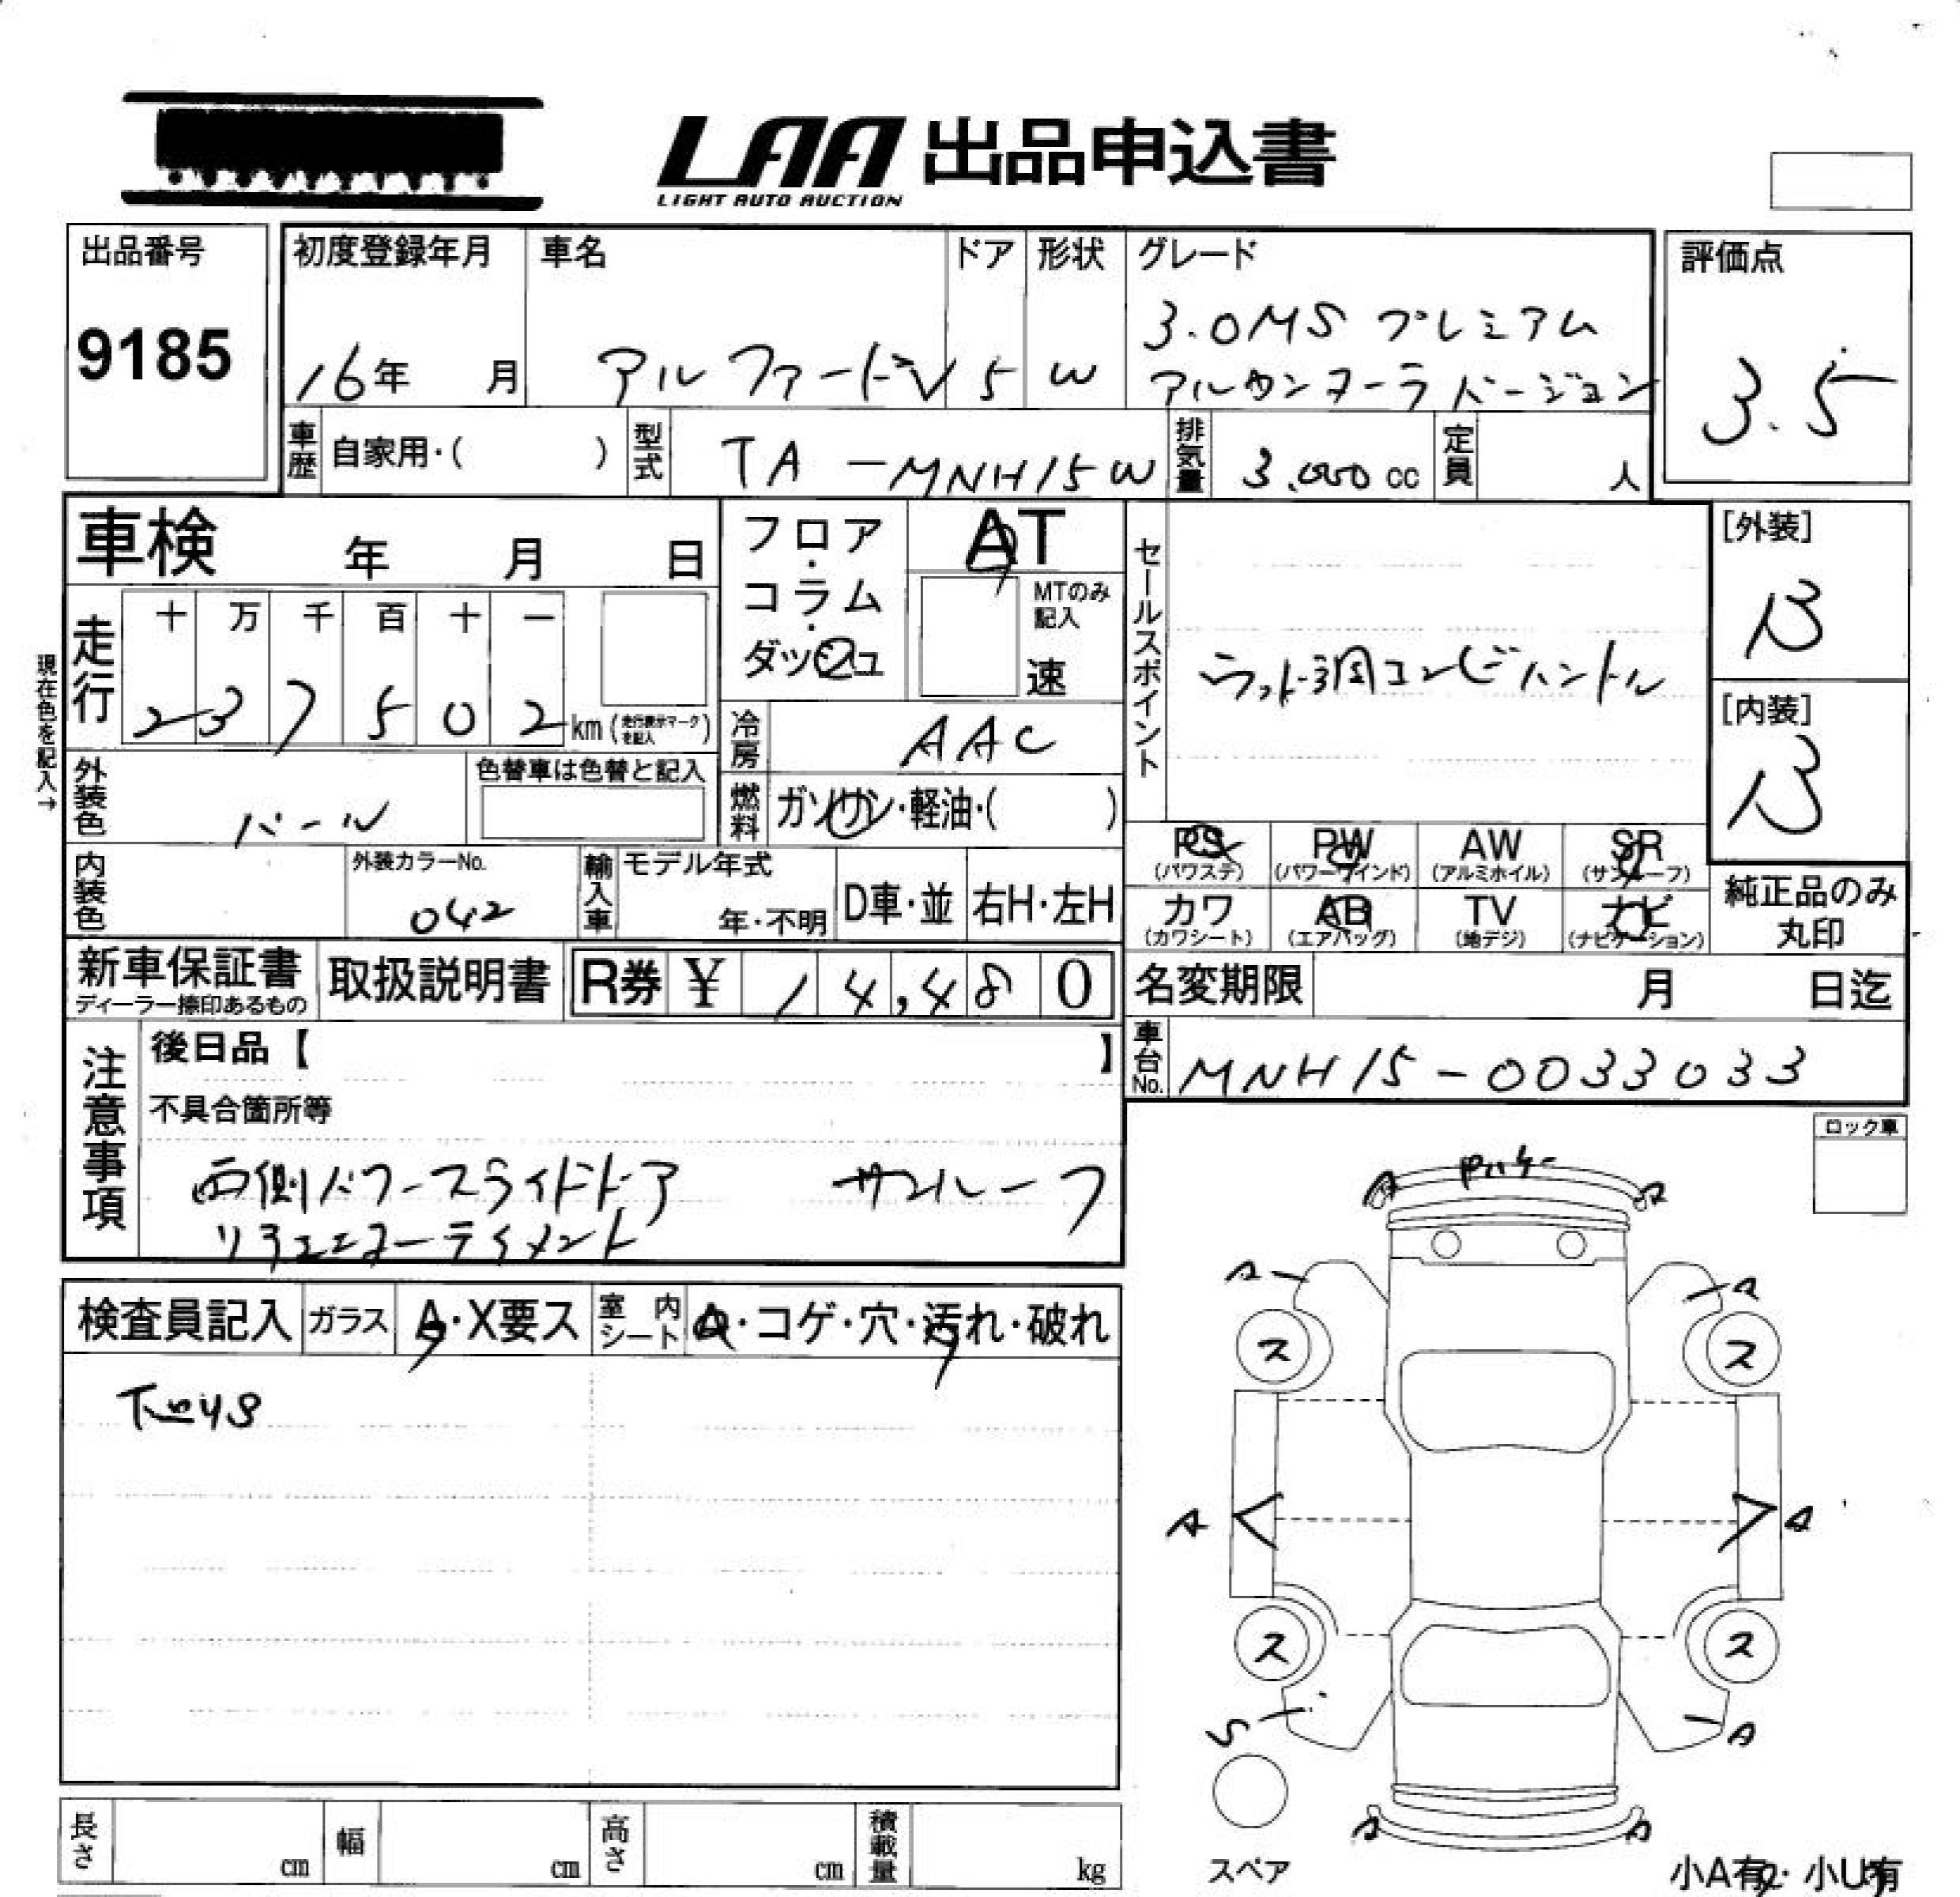 LAA 出品申込書
LIGHT AUTO AUCTION
出品番号
9185
初度登録年月
16年 月
車名
アルファードV
ドア
5
形状
W
グレード
3.0MS プレミアム
アルカンターラバージョン
評価点
3.5
車歴 自家用・( )
型式 TA-MNH15W
排気量 3.000 cc
定員 人
車検 年 月 日
フロア・コラム・ダッシュ
AT
MTのみ記入
速
セールスポイント
ウッド調コンビハンドル
[外装]
B
[内装]
B
現在色を記入→
走行
十 万 千 百 十 一
2 3 7 5 0 2 km (走行表示マークを記入)
冷房 AAC
外装色 パール
色替車は色替と記入
燃料 ガソリン・軽油・( )
内装色
外装カラーNo.
042
輸入車
モデル年式
年・不明
D車・並
右H・左H
PS (パワステ)
PW (パワーウインド)
AW (アルミホイル)
SR (サンルーフ)
カワ (カワシート)
AB (エアバッグ)
TV (地デジ)
ナビ (ナビゲーション)
純正品のみ
丸印
新車保証書
ディーラー捺印あるもの
取扱説明書
R券 ¥ 14,480
名変期限 月 日迄
車台No. MNH15-0033033
注意事項
後日品【 】
不具合箇所等
両側パワースライドドア サンルーフ
リアエンターテイメント
ロック車
検査員記入
ガラス A・X要ス
室内シート A・コゲ・穴・汚れ・破れ
下回サビ
A
A
A
A
ス
ス
A
A
ス
ス
S
A
A
A
スペア
小A有・小U有
長さ cm
幅 cm
高さ cm
積載量 kg